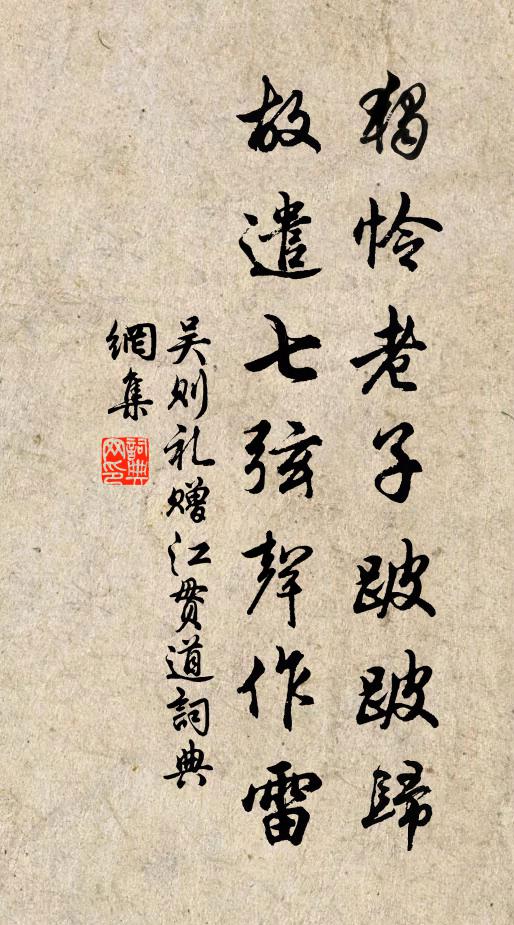 獨憐老子跛跛歸
故遣七弦聲作雷
吴则礼赠江贯道詞典
網集
詞典网印